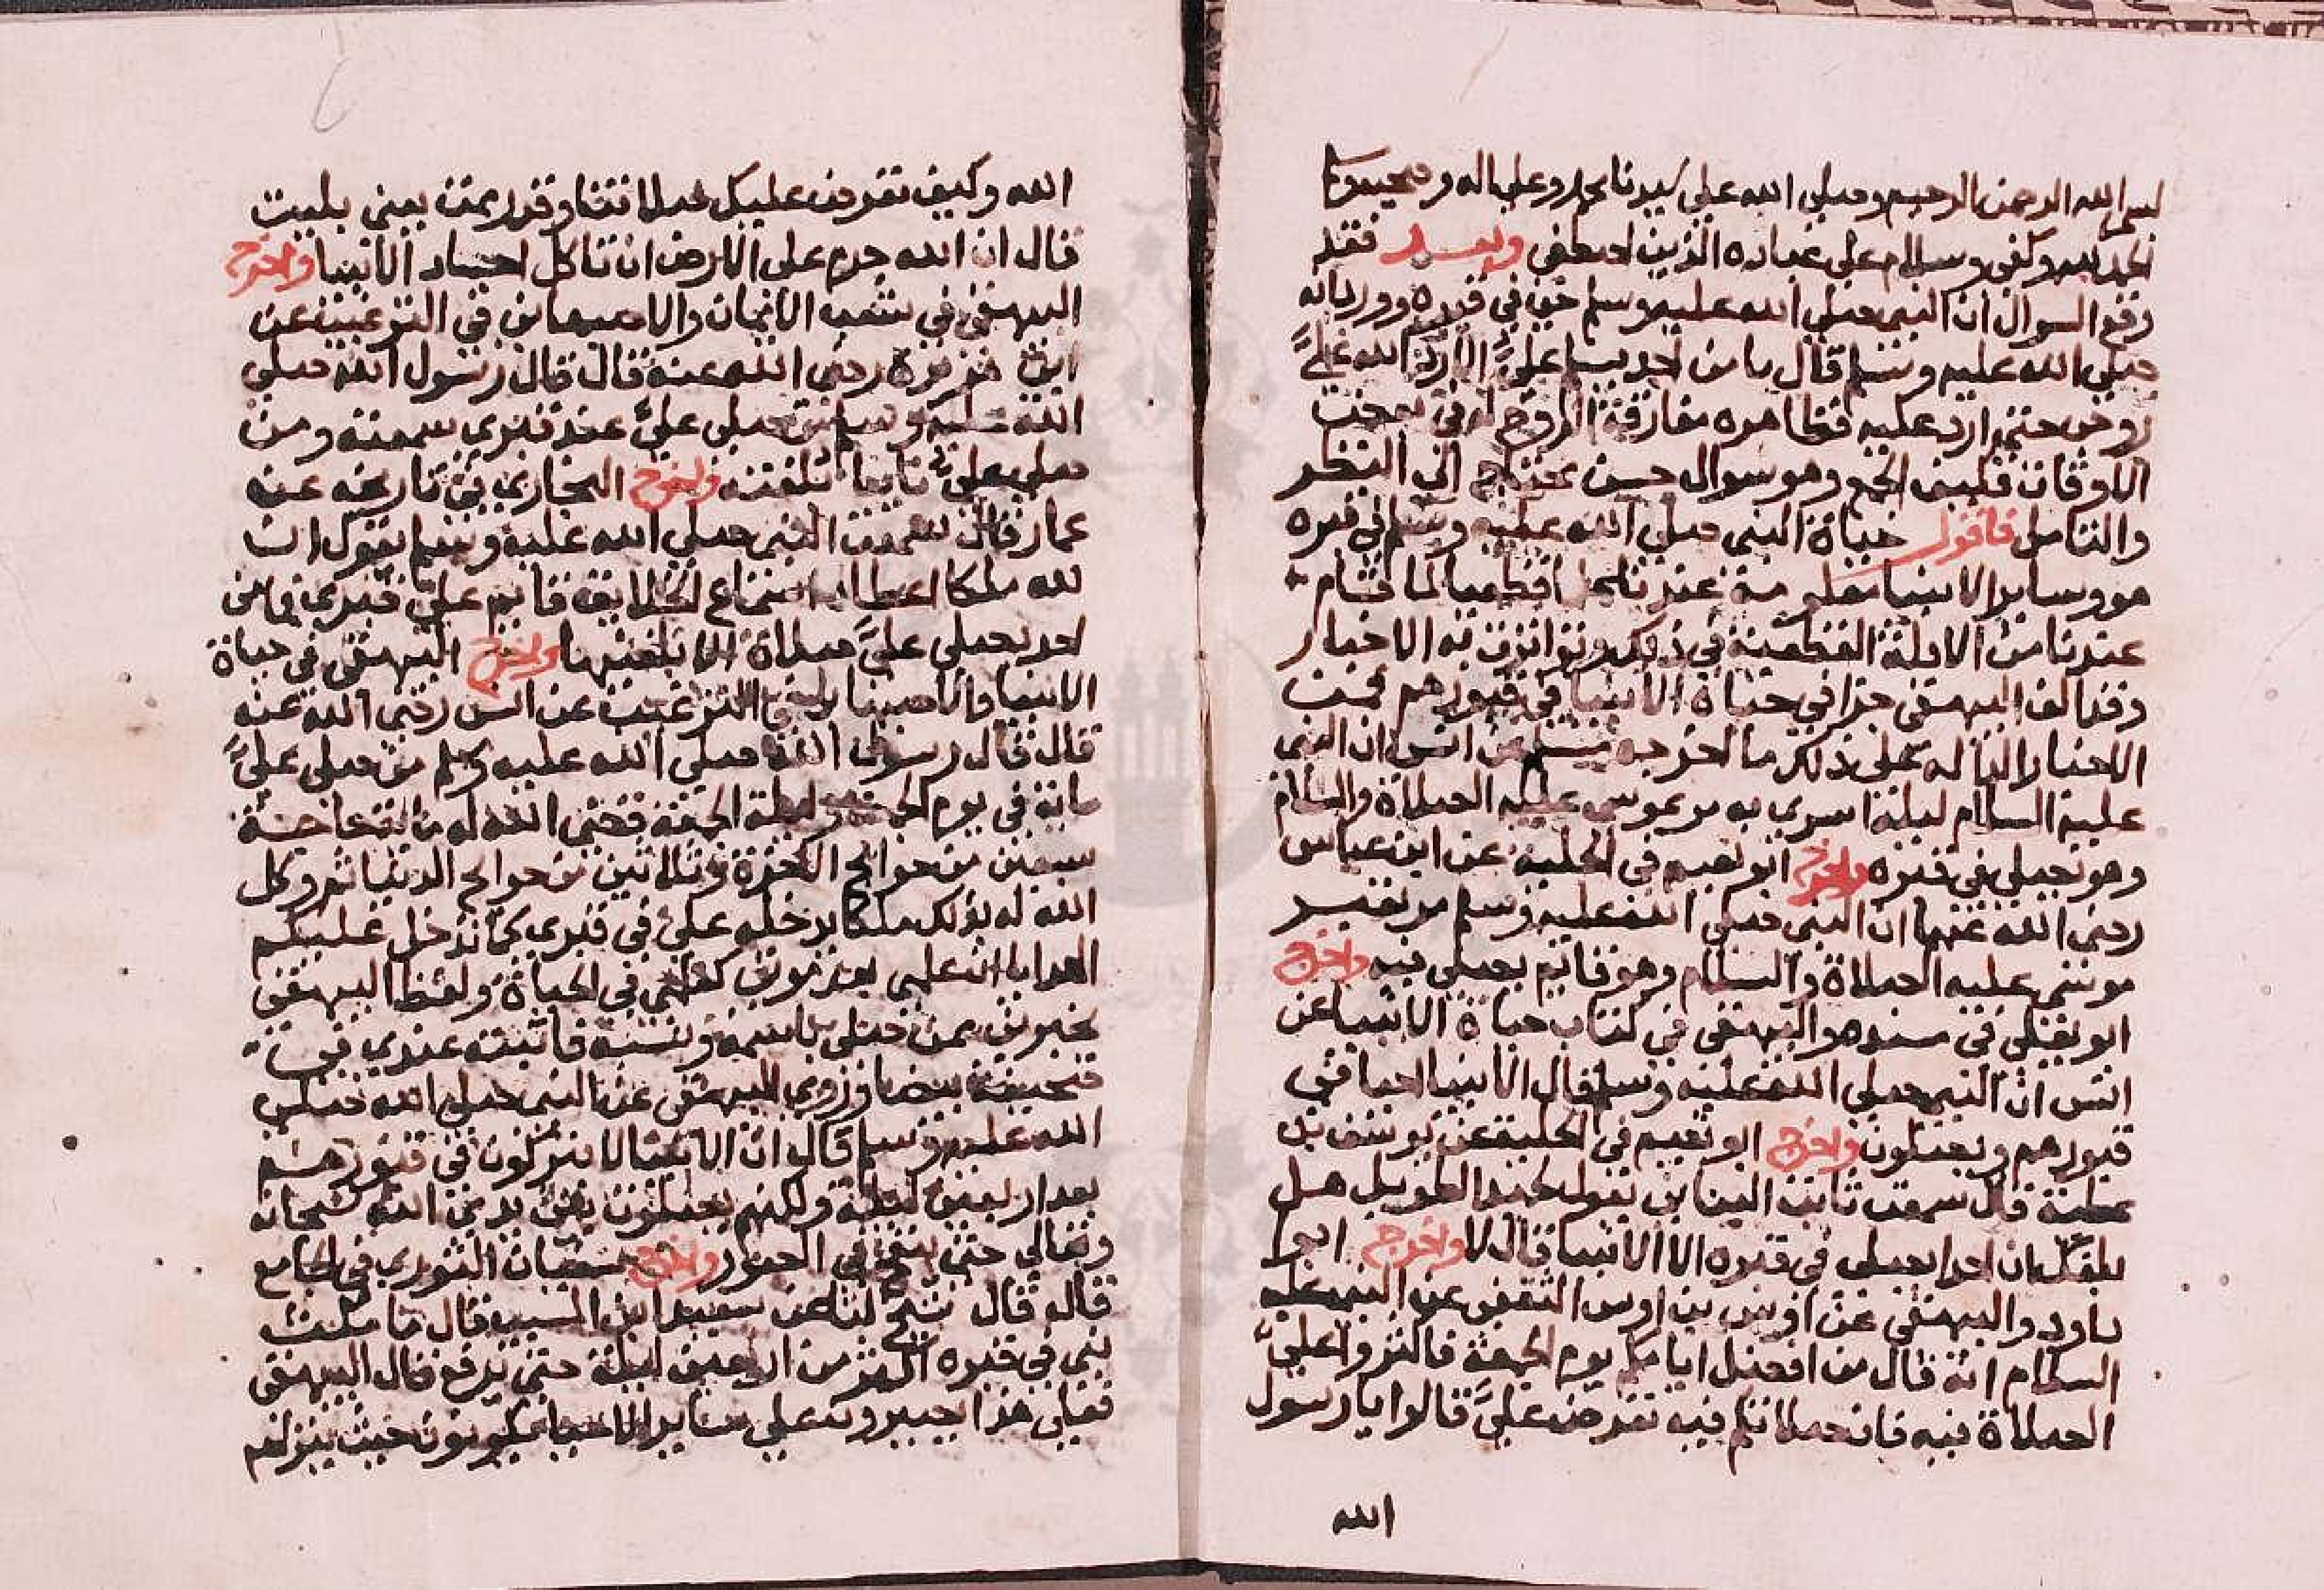 بسم الله الرحمن الرحيم وصلى الله على سيدنا محمد وعلى اله وصحبه وسلم
الحمد لله وكفى وسلام على عباده الذين اصطفى وبعد فقد
رفع السوال ان النبي صلى الله عليه وسلم حي في قبره وورد انه
صلى الله عليه وسلم قال ما من احد يسلم علي الا رد الله علي
روحي حتى ارد عليه فظاهره مفارقة الروح له في بعض
الاوقات فكيف الجمع وهو سوال حسن يحتاج الى النظر
والتامل فاقول حياة النبي صلى الله عليه وسلم في قبره
هو وساير الانبيا معلومة عندنا علما قطعيا لما قام
عندنا من الادلة القطعية في ذلك وتواترت به الاخبار
وقد الف البيهقي جزا في حياة الانبيا في قبورهم فمن
الاخبار الداله على ذلك ما اخرجه مسلم عن انس ان النبي
عليه السلام ليلة اسري به مر بموسى عليه الصلاة والسلام
وهو يصلي في قبره واخرج ابو نعيم في الحلية عن ابن عباس
رضي الله عنهما ان النبي صلى الله عليه وسلم مر بقبر
موسى عليه الصلاة والسلام وهو قايم يصلي فيه واخرج
ابو يعلى في مسنده والبيهقي في كتاب حياة الانبيا عن
انس ان النبي صلى الله عليه وسلم قال الانبيا احيا في
قبورهم ويصلون واخرج ابو نعيم في الحلية عن يوسف بن
عطية قال سمعت ثابت البناني يقول لحميد الطويل هل
بلغك ان احدا يصلي في قبره الا الانبيا قال لا واخرج ابو
داود والبيهقي عن اوس بن اوس الثقفي عن النبي عليه
السلام انه قال من افضل ايامكم يوم الجمعة فاكثروا علي
الصلاة فيه فان صلاتكم فيه تعرض علي قالوا يا رسول
الله
الله وكيف تعرض عليك صلاتنا وقد رممت يعني بليت
قال ان الله حرم على الارض ان تاكل اجساد الانبيا واخرج
البيهقي في شعب الايمان والاصبهاني في الترغيب عن
ابي هريرة رضي الله عنه قال قال رسول الله صلى
الله عليه وسلم من صلى علي عند قبري سمعته ومن
صلى علي نايبا بلغته واخرج البخاري في تاريخه عنه
عمار قال سمعت النبي صلى الله عليه وسلم يقول ان
لله ملكا اعطاه اسماع الخلايق قايم على قبري فما من
احد يصلي علي صلاة الا بلغتها واخرج البيهقي في حياة
الانبيا والاصبهاني في الترغيب عن انس رضي الله عنه
قال قال رسول الله صلى الله عليه وسلم من صلى علي
ماية في يوم الجمعة وليلة الجمعة قضى الله له ماية حاجة
سبعين من حوايج الاخرة وثلاثين من حوايج الدنيا ثم وكل
الله له بذلك ملكا يدخله علي في قبري كما تدخل عليكم
الهدايا ان علمي بعد موتي كعلمي في الحياة ولفظ البيهقي
يخبرني بمن صلى باسمه ونسبه فاثبته عندي في
صحيفة بيضا وروى البيهقي عن النبي صلى الله صلى
الله عليه وسلم قال ان الانبيا لا يتركون في قبورهم
بعد اربعين ليلة ولكنهم يصلون بين يدي الله سبحانه
وتعالى حتى ينفخ في الصور واخرج سفيان الثوري في الجامع
قال قال شيخ لنا عن سعيد ابن المسيب قال ما مكث
نبي في قبره اكثر من اربعين ليلة حتى يرفع قال البيهقي
فعلى هذا يصيرون على ساير الاحيا يكونون حيث ينزلهم